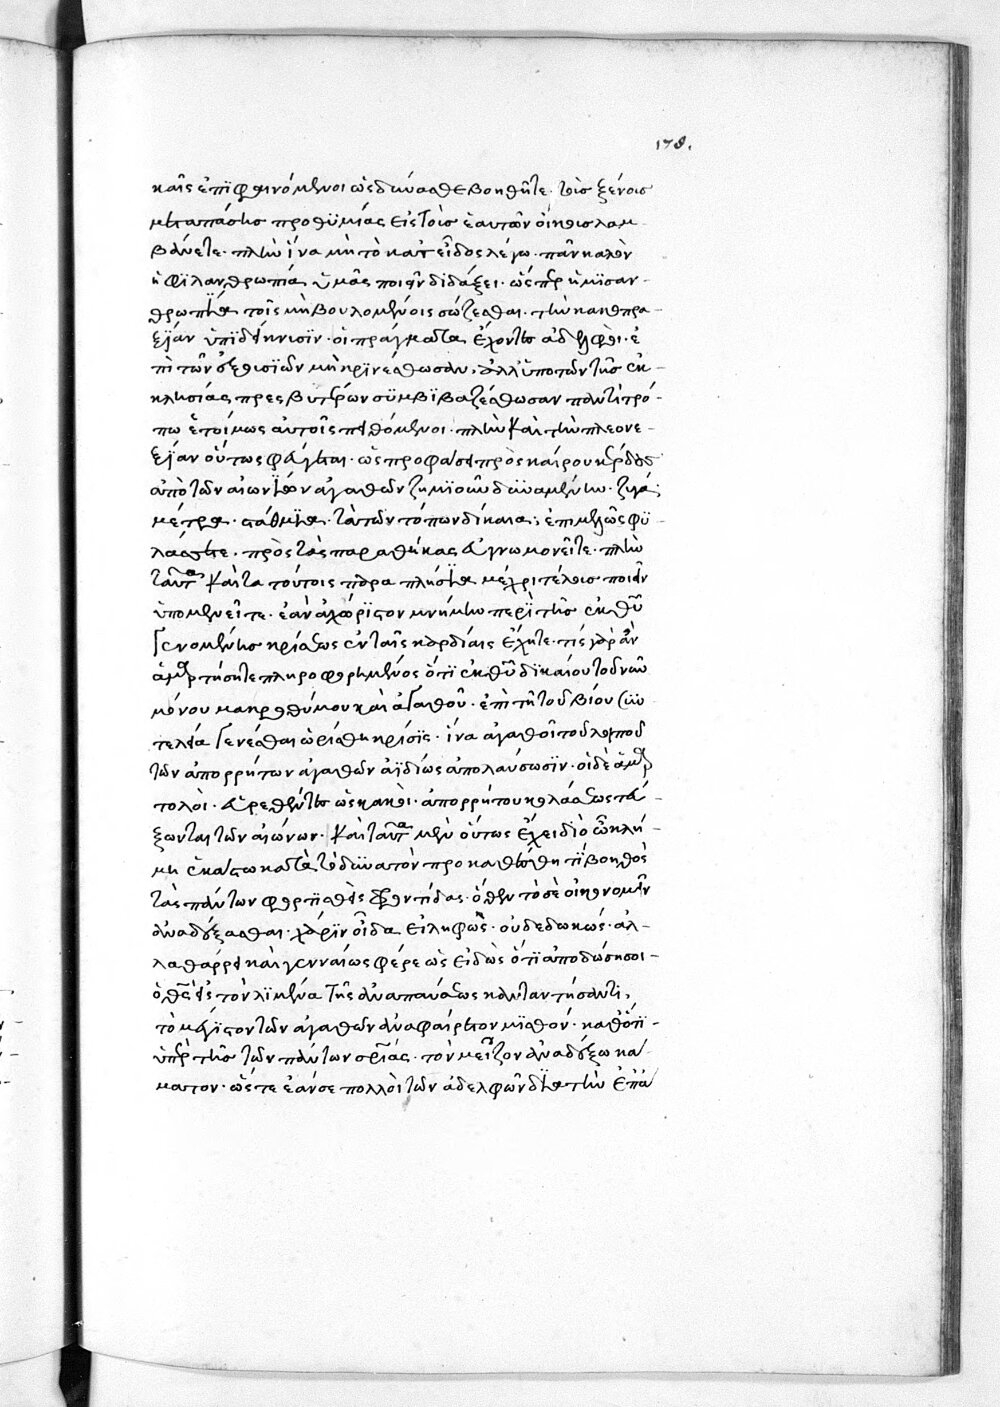 178.
καῖς ἐπϊφαινόμενοι ὡς δύνασθε βοηθῆτε· τοὺς ξένους
μετὰ πάσης προθυμίας εἰς τοὺς ἑαυτῶν οἴκους λαμ-
βάνετε· πλὴν ἵνα μὴ τὸ κατ' εἶδος λέγω· πᾶν καλὸν
ἡ φιλανθρωπία ὑμᾶς ποιεῖν διδάξει· ὥσπερ ἡ μισαν-
θρωπία τοῖς μὴ βουλομένοις σώζεσθαι· τὴν κακοπρα-
ξίαν ὑπϊδείκνυσϊν· οἱ πράγματα ἔχοντες ἀδελφοὶ· ἐ-
πὶ τῶν ἐξουσϊῶν μὴ κρϊνέσθωσαν, ἀλλ' ὑπὸ τῶν τῆς ἐκ-
κλησίας πρεσβυτέρων συμβϊβαζέσθωσαν παντὶ τρό-
πω ἑτοίμως αὐτοῖς πειθόμενοι· πλὴν καὶ τὴν πλεονε-
ξίαν οὕτως φεύγεται· ὡς προφάσει προσκαίρου κέρδους
ἀπὸ τῶν αἰωνίων ἀγαθῶν ζημιοῦν δυναμένην· ζυγὰ,
μέτρα· στάθμϊα· τὰ τῶν τόπων δίκαια, ἐπιμελῶς φυ-
λάσσετε· πρὸς τὰς παραθήκας εὐγνωμονεῖτε· πλὴν
ταῦτα καὶ τὰ τούτοις παραπλήσϊα μέχρι τέλους ποιεῖν
ὑπομενεῖτε· ἐὰν ἀχώρϊστον μνήμην περὶ τῆς ἐκ θεοῦ
γενομένης κρίσεως ἐν ταῖς καρδίαις ἔχητε· τίς γὰρ ἂν
ἁμαρτήση τε πληροφορημένος ὅτϊ ἐκ θεοῦ δϊκαίου τοῦ νῦν
μόνου μακροθύμου καὶ ἀγαθοῦ· ἐπὶ τῇ τοῦ βίου συν
τελεία γενέσθαι ὡρίσθη κρίσϊς· ἵνα ἀγαθοὶ τοῦ λοιποῦ
τῶν ἀπορρήτων ἀγαθῶν ἀϊδίως ἀπολαύσωσϊν· οἱ δὲ ἁμαρ
τολοὶ· εὑρεθέντες ὡς κακοὶ· ἀπορρήτου κολάσεως τεύ-
ξωνται τῶν αἰώνων· καὶ ταῦτα μὲν οὕτως ἔχει διὸ ὦ κλή-
μη ἑκάστω κατὰ τὸ δυνατὸν προκαθέσθητϊ βοηθὸς
τὰς πάντων φορτϊσθεὶς φροντίδας· ὅθεν τό σε οἰκονομεῖν
ἀναδέξασθαι· χάρϊν οἶδα εἰληφὼς· οὐ δεδωκώς· ἀλ-
λὰ θάρρει καὶ γενναίως φέρε ὡς εἰδὼς ὅτϊ ἀποδώσῃ σοι-
ὁ θεὸς εἰς τὸν λϊμένα τῆς ἀναπαύσεως κα
τὸ μέγϊστον τῶν ἀγαθῶν ἀναφαίρετον μϊσθόν· καθότϊ-
ὑπὲρ τῆς τῶν πάντων σωτηρίας· τὸν μεῖζον ἀναδέξω κά-
ματον· ὥστε ἐάν σε πολλοὶ τῶν ἀδελφῶν δϊὰ τὴν ἐπά